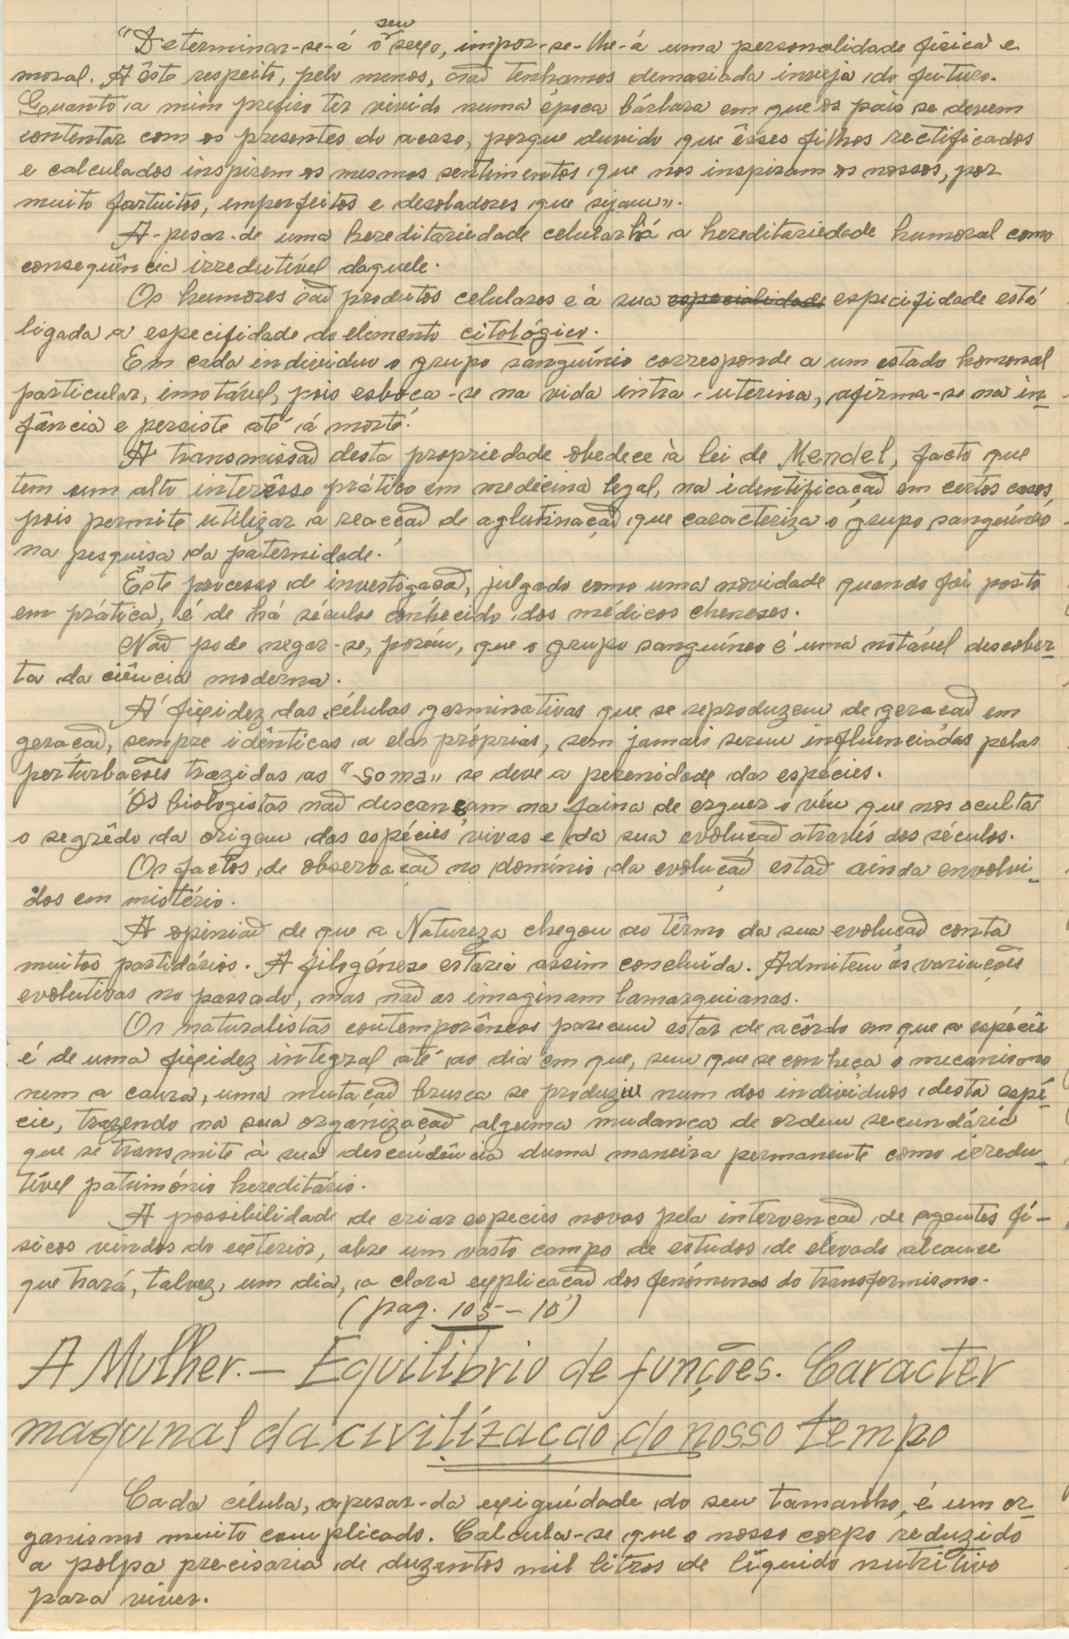 "Determinar-se-á o seu sexo, impor-se-lhe-á uma personalidade física e
moral. A êste respeito, pelo menos, não tenhamos demasiada inveja do futuro.
Quanto a mim prefiro ter vivido numa época bárbara em que os pais se devem
contentar com os presentes do acaso, porque duvido que êsses filhos rectificados
e calculados inspirem os mesmos sentimentos que nos inspiram os nossos, por
muito fortuitos, imperfeitos e desoladores que sejam".
A-pesar-de uma hereditariedade celular há a hereditariedade humoral como
consequência irredutível daquele.
Os humores são produtos celulares e à sua especialidade especifidade está
ligada a especifidade do elemento citológico.
Em cada indivíduo o grupo sanguínio corresponde a um estado homonal
particular, imotável, pois esboça-se na vida intra-uterina, afirma-se na in-
fância e persiste até á morte.
A transmissão desta propriedade obedece à lei de Mendel, facto que
tem um alto interêsse prático em medicina legal, na identificação em certos casos,
pois permite utilizar a reacção de aglutinação que caracteriza o grupo sanguíneo
na pesquisa da paternidade.
Êste processo de investigação, julgado como uma novidade quando foi posto
em prática, é de há séculos conhecido dos médicos cheneses.
Não pode negar-se, porém, que o grupo sanguíneo é uma notável descober-
ta da ciência moderna.
A' fixidez das células germinativas que se reproduzem de geração em
geração, sempre idênticas a elas próprias, sem jamais serem influenciadas pelas
perturbações trazidas ao "soma" se deve a perenidade das espécies.
Os biologistas não descançam na faina de erguer o véu que nos oculta
o segrêdo da origem das espécies vivas e da sua evolução através dos séculos.
Os factos de observação no domínio da evolução estão ainda envolvi-
dos em mistério.
A opinião de que a Natureza chegou ao têrmo da sua evolução conta
muitos partidários. A filogénese estaria assim concluída. Admitem as variações
evolutivas no passado, mas não as imaginam lamarquianas.
Os naturalistas contemporâneos parecem estar de acôrdo em que a espécie
é de uma fixidez integral até ao dia em que, sem que se conheça o mecanismo
nem a causa, uma mutação brusca se produziu num dos indivíduos desta espé-
cie, trazendo na sua organização alguma mudança de ordem secundária
que se transmite à sua descendência duma maneira permanente como irredu-
tível património hereditário.
A possibilidade de criar especies novas pela intervenção de agentes fí-
sicos vindos do exterior, abre um vasto campo de estudos de elevado alcance
que trará, talvez, um dia, a clara explicação dos fenómenos do transformismo.
(pag. 105-10)
A Mulher. — Equilíbrio de funções. Caracter
maquinal da civilização do nosso tempo
Cada célula, apesar-da exiguidade do seu tamanho, é um or-
ganismo muito complicado. Calcula-se que o nosso corpo reduzido
a polpa precisaria de duzentos mil litros de líquido nutritivo
para viver.